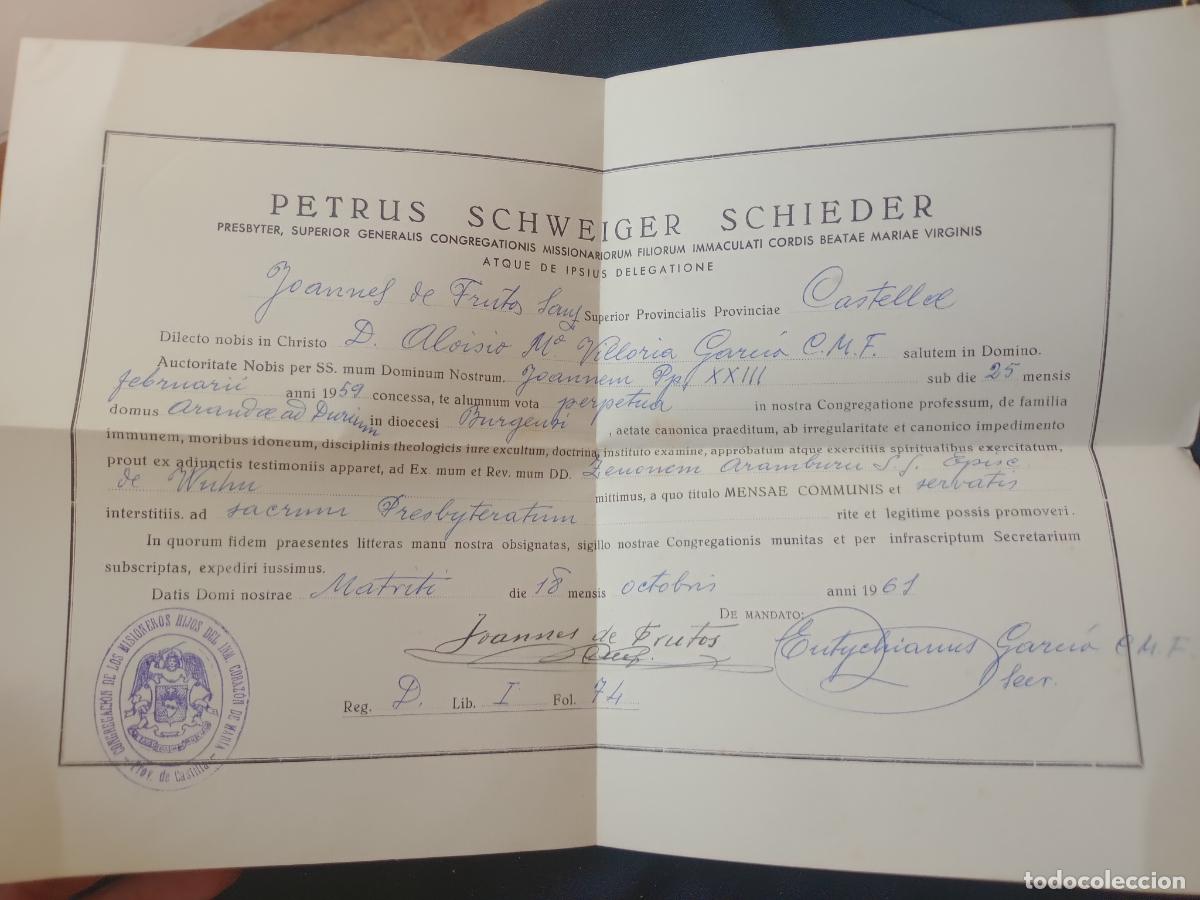 PETRUS SCHWEIGER SCHIEDER
PRESBYTER, SUPERIOR GENERALIS CONGREGATIONIS MISSIONARIORUM FILIORUM IMMACULATI CORDIS BEATAE MARIAE VIRGINIS
ATQUE DE IPSIUS DELEGATIONE
Joannes de Frutos Sanz Superior Provincialis Provinciae Castellæ
Dilecto nobis in Christo D. Aloisio Mª Villoria García C.M.F. salutem in Domino.
Auctoritate Nobis per SS. mum Dominum Nostrum. Joannem Pp. XXIII sub die 25 mensis
februarii anni 1959 concessa, te alumnum vota perpetua in nostra Congregatione professum, de familia
domus Arandæ ad Durium in dioecesi Burgensi , aetate canonica praeditum, ab irregularitate et canonico impedimento
immunem, moribus idoneum, disciplinis theologicis iure excultum, doctrina, instituto examine, approbatum atque exercitiis spiritualibus exercitatum,
prout ex adiunctis testimoniis apparet, ad Ex. mum et Rev. mum DD. Zenonem Aramburu S.J. Episc.
de Wuhu mittimus, a quo titulo MENSAE COMMUNIS et servatis
interstitiis. ad sacrum Presbyteratum rite et legitime possis promoveri.
In quorum fidem praesentes litteras manu nostra obsignatas, sigillo nostrae Congregationis munitas et per infrascriptum Secretarium
subscriptas, expediri iussimus.
Datis Domi nostrae Matriti die 18 mensis octobris anni 1961
DE MANDATO:
Joannes de Frutos
Eutychianus García C.M.F.
Secr.
Reg. D. Lib. I Fol. 74
CONGREGACION DE LOS MISIONEROS HIJOS DEL INM. CORAZÓN DE MARIA
- Prov. de Castilla -
todocoleccion